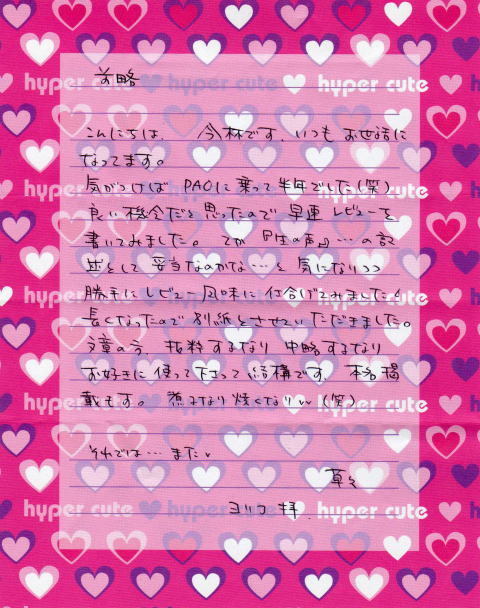 hyper cute hyper cute
前略
こんにちは、今林です、いつもお世話に
なってます。
気がつけば PAOに乗って半年でした(笑)
良い機会だと思ったので早速レビューを
書いてみました。てか『生の声』…の記
述として妥当なのかな…と気になりつつ
勝手にレビュー風味に仕上げてみました!
長くなったので別紙とさせていただきました。
文章の方、抜粋するなり中略するなり
お好きに使って下さって結構です、本名掲
載もす。煮るなり焼くなりw (笑)
hyper cute hyper cute
それでは…また、
草々
ヨリコ 拝.
hyper cute hyper cute